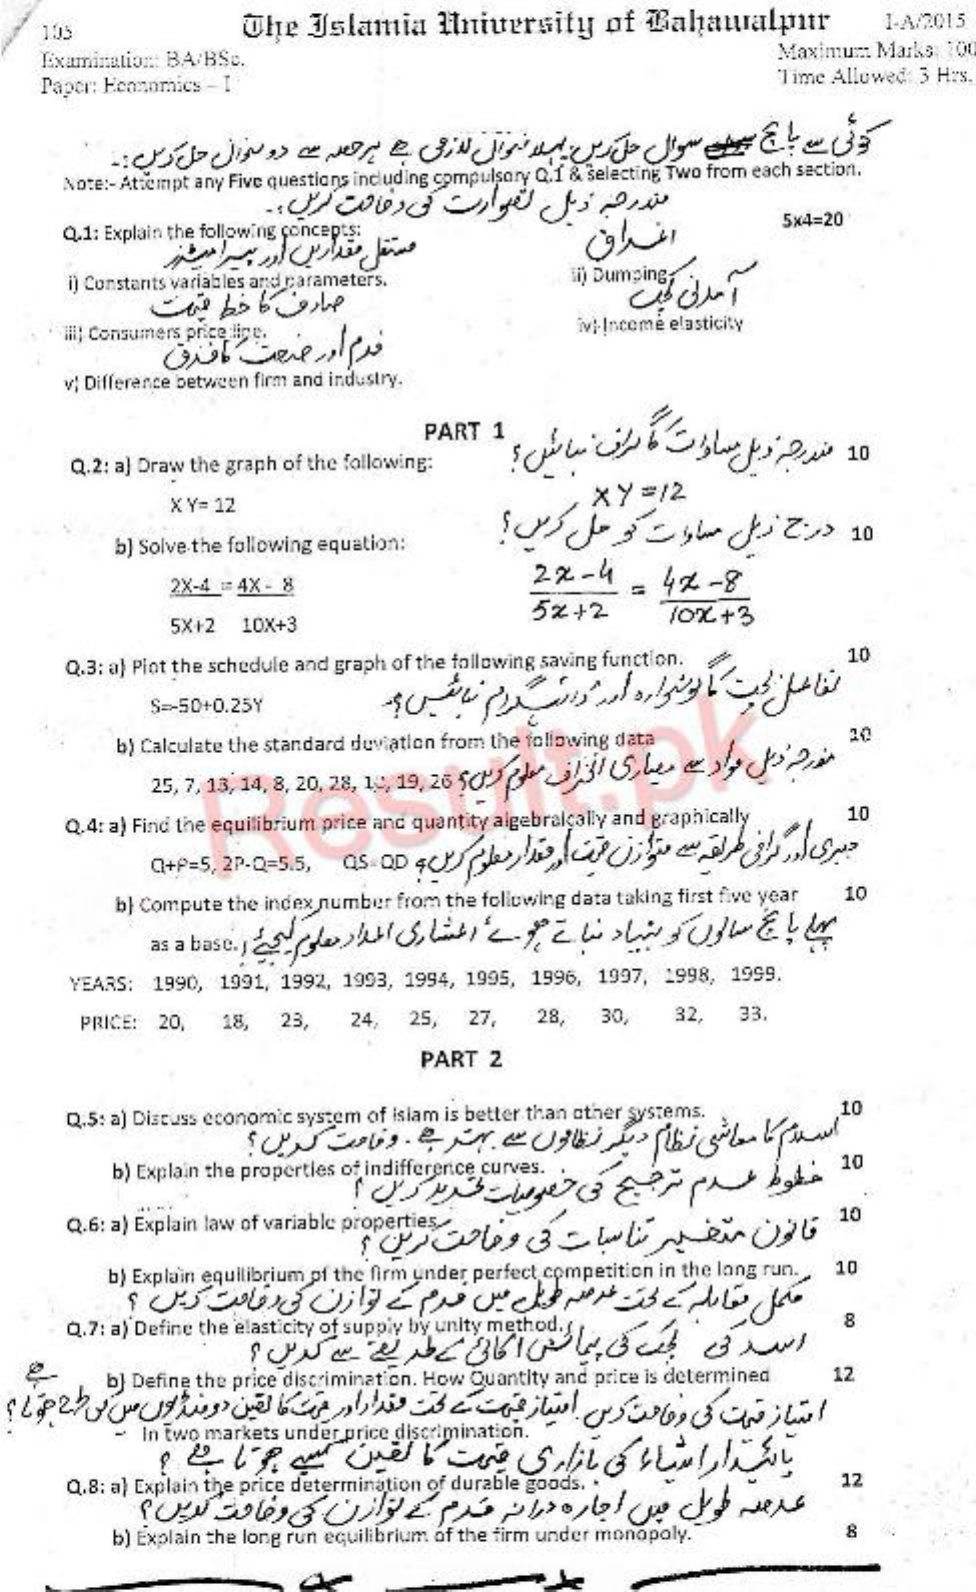 105 The Islamia University of Bahawalpur I-A/2015
Examination: BA/BSc. Maximum Marks: 100
Paper: Economics – I Time Allowed: 3 Hrs.
کوئی سے پانچ سوال حل کریں پہلا سوال لازمی ہے ہر حصہ سے دو سوال حل کریں :۔
Note:- Attempt any Five questions including compulsory Q.1 & selecting Two from each section.
مندرجہ ذیل تصورات کی وضاحت کریں :۔
Q.1: Explain the following concepts: 5x4=20
مستقل مقداریں اور پیرامیٹرز اغراق
i) Constants variables and parameters. ii) Dumping
صارف کا خط قیمت آمدنی لچک
iii) Consumers price line. iv) Income elasticity
فرم اور صنعت کا فرق
v) Difference between firm and industry.
PART 1
Q.2: a) Draw the graph of the following: مندرجہ ذیل مساوات کا گراف بنائیں؟ 10
X Y= 12 XY=12
b) Solve the following equation: درج ذیل مساوات کو حل کریں؟ 10
2X-4 = 4X - 8 2x-4 = 4x-8
5X+2 10X+3 5x+2 10x+3
Q.3: a) Plot the schedule and graph of the following saving function. 10
S=-50+0.25Y تفاعل بچت کا گوشوارہ اور ڈائیگرام بنائیں؟
b) Calculate the standard deviation from the following data 10
25, 7, 13, 14, 8, 20, 28, 19, 26 مندرجہ ذیل مواد سے معیاری انحراف معلوم کریں؟
Q.4: a) Find the equilibrium price and quantity algebraically and graphically 10
Q+P=5, 2P-Q=5.5, QS=QD جبری اور گرافی طریقہ سے متوازن قیمت اور مقدار معلوم کریں؟
b) Compute the index number from the following data taking first five year 10
as a base. پہلے پانچ سالوں کو بنیاد بناتے ہوئے اعشاری اعداد معلوم کیجئے؟
YEARS: 1990, 1991, 1992, 1993, 1994, 1995, 1996, 1997, 1998, 1999.
PRICE: 20, 18, 23, 24, 25, 27, 28, 30, 32, 33.
PART 2
Q.5: a) Discuss economic system of islam is better than other systems. 10
اسلام کا معاشی نظام دیگر نظاموں سے بہتر ہے۔ وضاحت کریں؟
b) Explain the properties of indifference curves. 10
خطوط عدم ترجیح کی خصوصیات تحریر کریں؟
Q.6: a) Explain law of variable properties 10
قانون متغیر تناسبات کی وضاحت کریں؟
b) Explain equilibrium of the firm under perfect competition in the long run. 10
مکمل مقابلہ کے تحت عرصہ طویل میں فرم کے توازن کی وضاحت کریں؟
Q.7: a) Define the elasticity of supply by unity method. 8
رسد کی لچک کی پیمائش اکائی کے طریقے سے کریں؟
b) Define the price discrimination. How Quantity and price is determined 12
امتیاز قیمت کی وضاحت کریں۔ امتیاز قیمت کے تحت مقدار اور قیمت کا تعین دو منڈیوں میں کس طرح ہوتا ہے؟
In two markets under price discrimination.
پائیدار اشیاء کی بازاری قیمت کا تعین کیسے ہوتا ہے؟
Q.8: a) Explain the price determination of durable goods. 12
عرصہ طویل میں اجارہ دارانہ فرم کے توازن کی وضاحت کریں؟
b) Explain the long run equilibrium of the firm under monopoly. 8
Result.pk